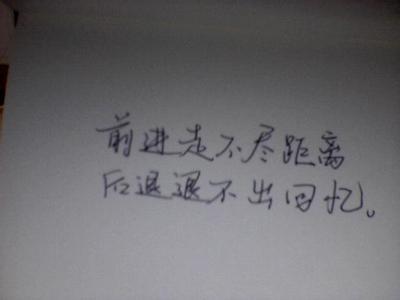 前进走不尽距离
后退退不出回忆。